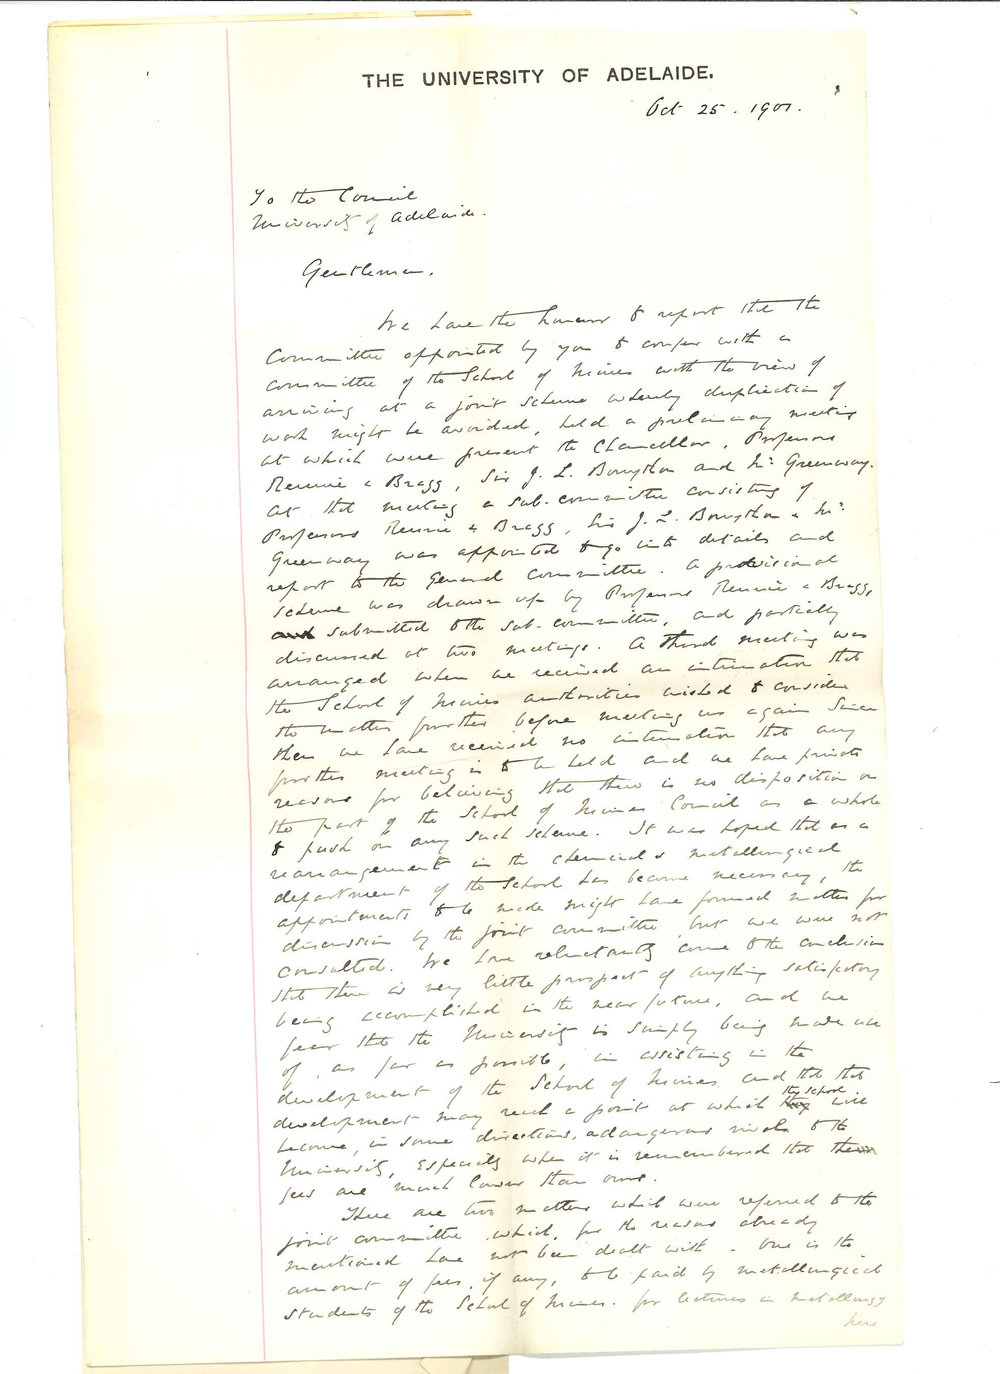 THE UNIVERSITY OF ADELAIDE.
Oct 25. 1901.
To the Council
University of Adelaide.
Gentlemen.
We have the honour to report that the
Committee appointed by you to confer with a
committee of the School of Mines with the view of
arriving at a joint scheme whereby duplication of
work might be avoided, held a preliminary meeting
at which were present the Chancellor, Professors
Rennie & Bragg, Sir J. L. Bonython and Mr. Greenway.
At that meeting a sub-committee consisting of
Professors Rennie & Bragg, Sir J. L. Bonython & Mr.
Greenway was appointed to go into details and
report to the General Committee. A provisional
scheme was drawn up by Professors Rennie & Bragg,
and submitted to the sub-committee, and partially
discussed at two meetings. A third meeting was
arranged when we received an intimation that
the School of Mines authorities wished to consider
the matter further before meeting us again Since
then we have received no intimation that any
further meeting is to be held and we have private
reasons for believing that there is no disposition on
the part of the School of Mines Council as a whole
to push on any such scheme. It was hoped that as a
rearrangement in the chemical & metallurgical
department of the School has become necessary, the
appointments to be made might have formed matter for
discussion by the joint committee, but we were not
consulted. We have reluctantly come to the conclusion
that there is very little prospect of anything satisfactory
being accomplished in the near future, and we
fear that the University is simply being made use
of, as far as possible, in assisting in the
development of the School of Mines and that that
development may reach a point at which they the school will
become, in some directions, a dangerous rival to the
University, especially when it is remembered that their
fees are much lower than ours.
There are two matters which were referred to the
joint committee which, for the reasons already
mentioned have not been dealt with. One is the
amount of fees, if any, to be paid by metallurgical
students of the School of Mines. for lectures in Metallurgy
here